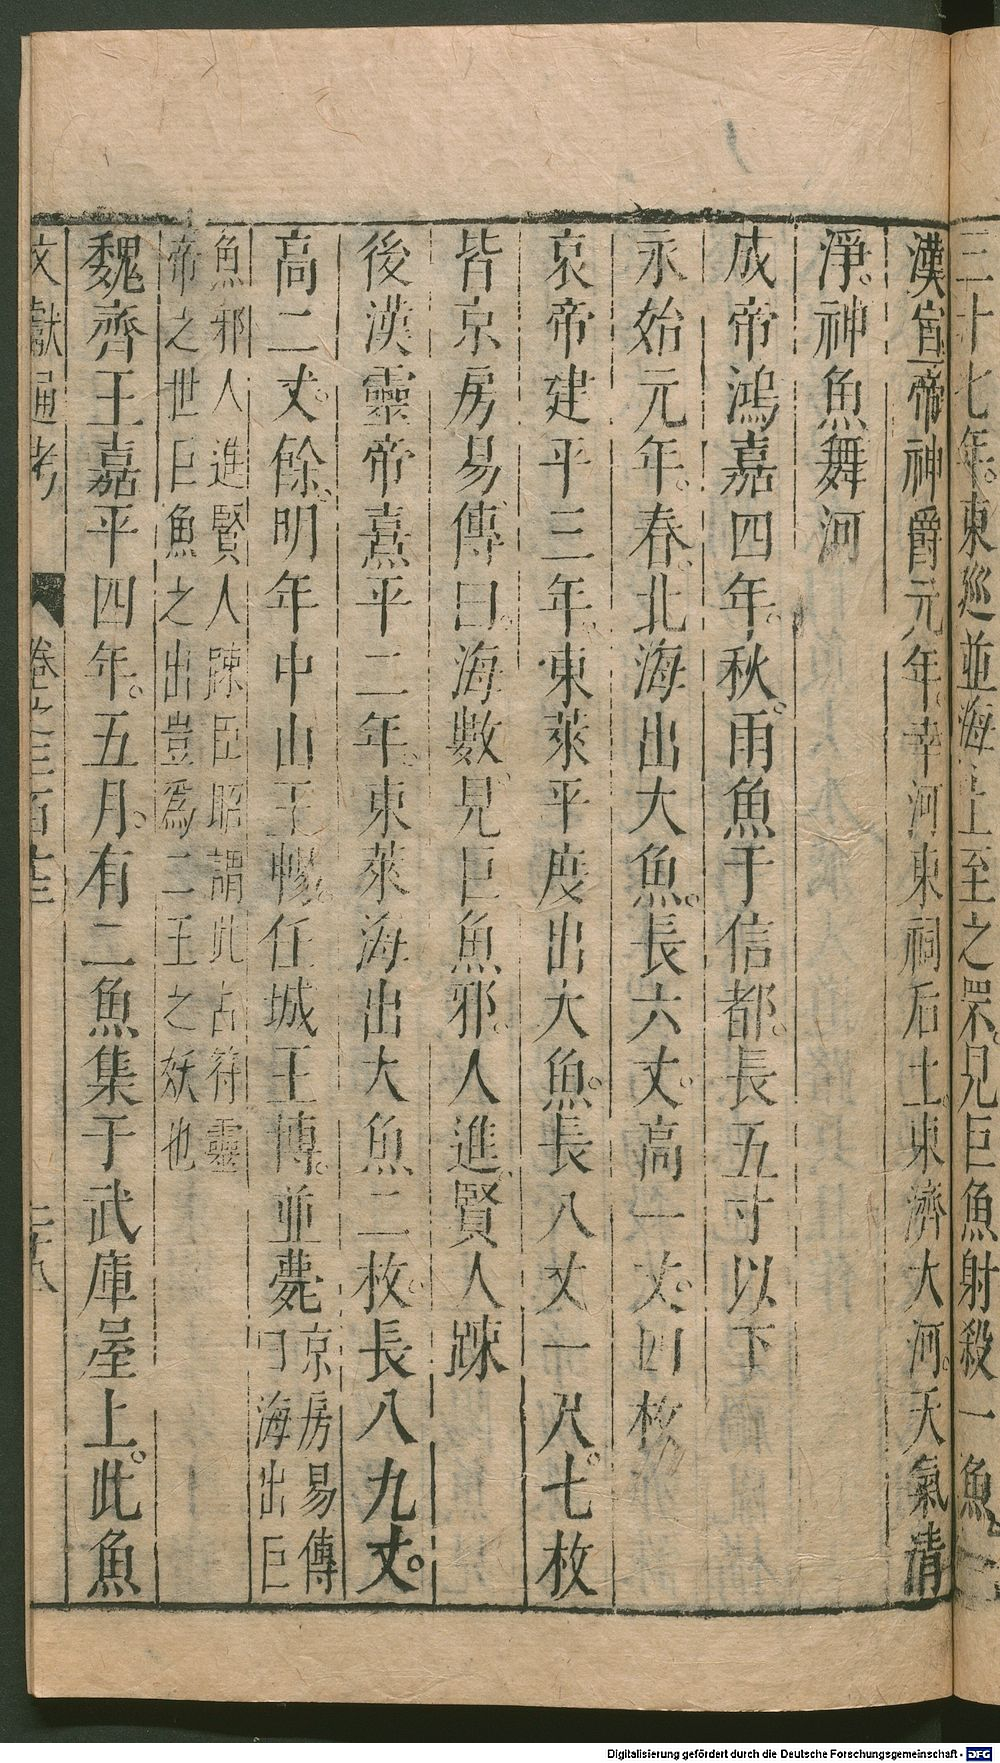 三十七年。東巡並海上至之罘。見巨魚射殺一魚
漢宣帝神爵元年。幸河東祠后土。東濟大河。天氣清
淨。神魚舞河
成帝鴻嘉四年。秋。雨魚于信都。長五寸以下
永始元年。春。北海出大魚。長六丈。高一丈。四枚
哀帝建平三年。東萊平度出大魚。長八丈一尺。七枚
皆京房易傳曰。海數見巨魚邪。人進。賢人踈
後漢靈帝熹平二年。東萊海出大魚二枚。長八九丈。
高二丈。餘。明年中山王暢。任城王博。並薨京房易傳
曰海出巨
魚邪人進賢人踈臣昭謂此占符靈
帝之世巨魚之出豈爲二王之妖也
魏齊王嘉平四年。五月。有二魚集于武庫屋上。此魚
文獻通考 卷之三百 二十八
Digitalisierung gefördert durch die Deutsche Forschungsgemeinschaft - DFG